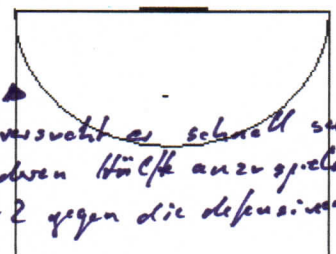 versucht er schnell
Hälfte anzuspiel
2 gegen die defensive